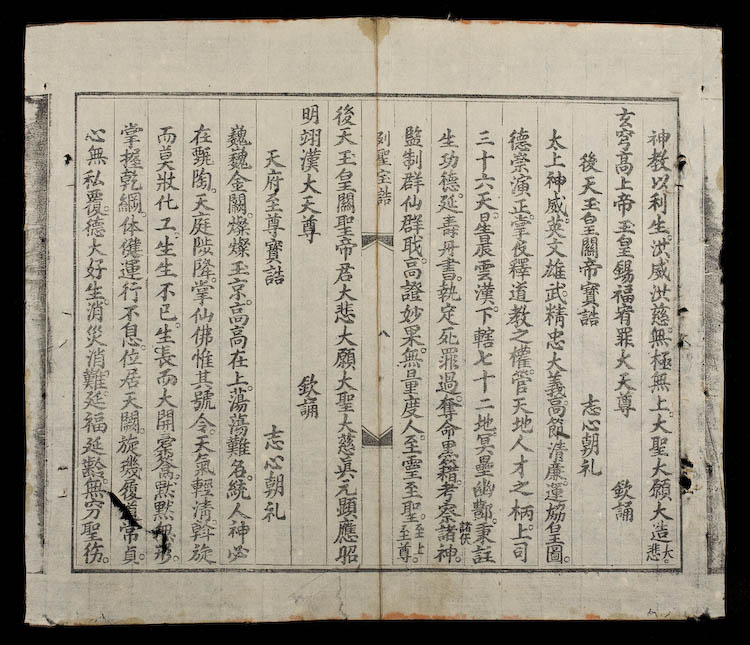 神教以利生。洪威洪慈。無極無上。大聖大願大造大悲。
玄穹高上帝玉皇錫福宥罪大天尊　欽誦
後天玉皇關帝寶誥　志心朝礼
太上神威。英文雄武。精忠大義。高節清廉。運協皇圖。
德崇演正。掌伩釋道教之權。管天地人才之柄。上司
三十六天。日星辰雲漢。下轄七十二地。冥壘幽酆。秉註
生功德。延壽丹書。執定死罪過。奪命黑籍。考察諸仸諸神。
監制群仙群职。高證妙果。無量度人。至靈至聖。至上至尊。
列聖宝誥　八
後天玉皇關聖帝君大悲大願大聖大慈眞元顯應昭
明翊漢大天尊　欽誦
天府至尊寶誥　志心朝礼
巍巍金闕。燦燦玉京。高高在上。蕩蕩難名。統人神必
在甄陶。天庭陟降。掌仙佛惟其號令。天氣輕清。斡旋
而莫狀化工。生生不已。生長而大開橐籥。默默無形。
掌握乾綱。体健運行不息。位居天闕。旋璣履道常貞。
心無私覆。德大好生。消災消難。延福延齡。無穷聖